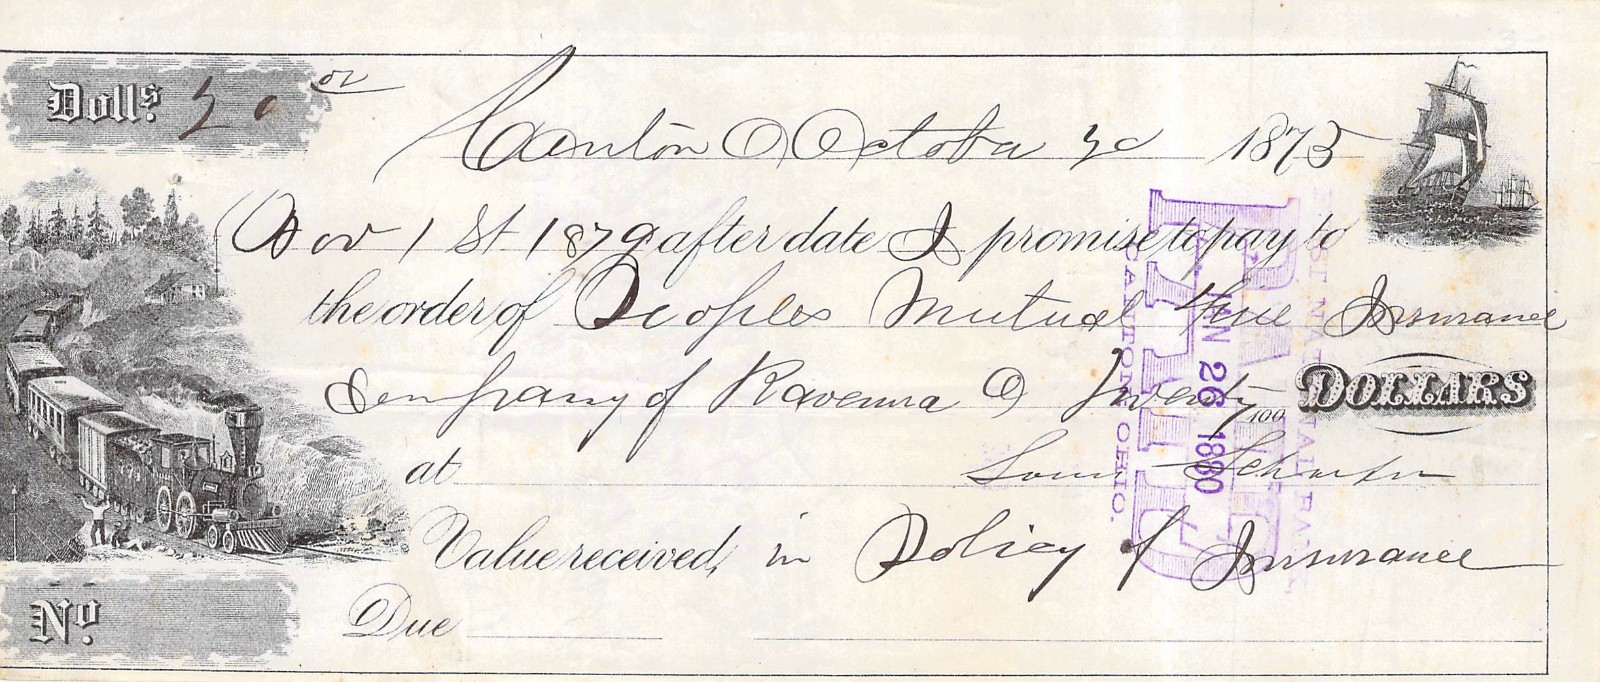 Dolls. 20 00
Canton O October 30 1875
Nov 1 St 1879 after date I promise to pay to
the order of Peoples Mutual Fire Insurance
Company of Ravenna O Twenty 100 DOLLARS
at Louis
Value received, in Policy of Insurance
No.
Due
PAID
JAN 26 1880
CANTON, OHIO.